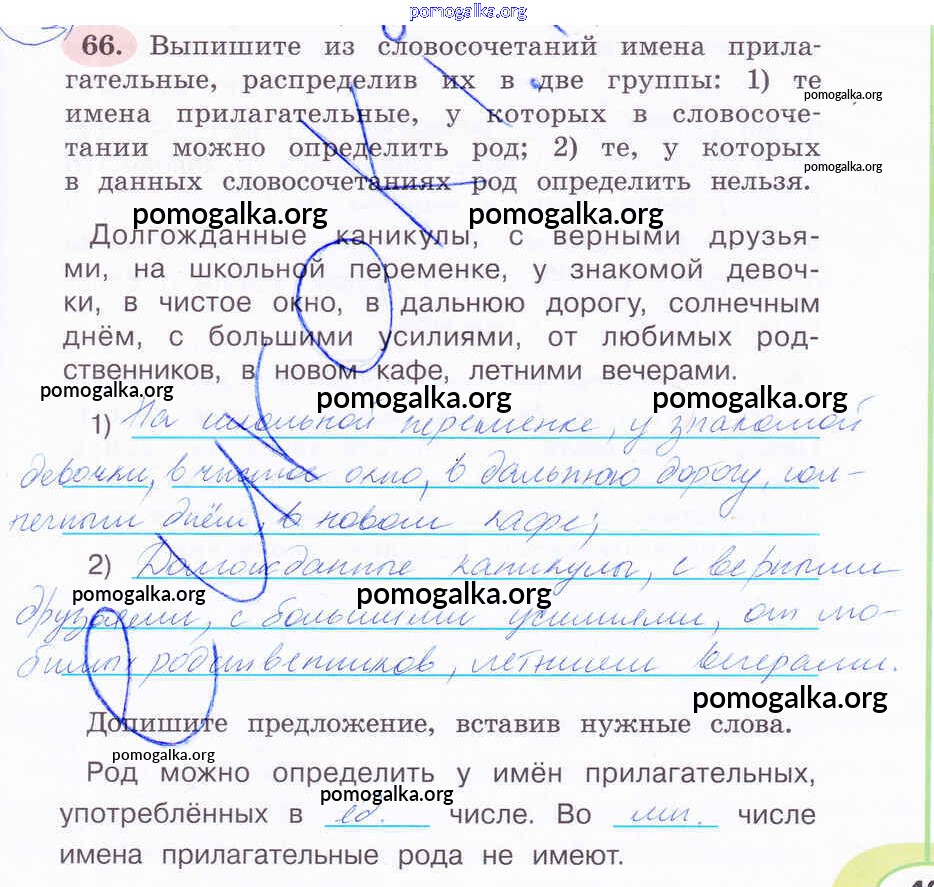 pomogalka.org
66. Выпишите из словосочетаний имена прила-
гательные, распределив их в две группы: 1) те
pomogalka.org
имена прилагательные, у которых в словосоче-
тании можно определить род; 2) те, у которых
pomogalka.org
в данных словосочетаниях род определить нельзя.
pomogalka.org pomogalka.org
Долгожданные каникулы, с верными друзья-
ми, на школьной переменке, у знакомой девоч-
ки, в чистое окно, в дальнюю дорогу, солнечным
днём, с большими усилиями, от любимых род-
ственников, в новом кафе, летними вечерами.
pomogalka.org pomogalka.org pomogalka.org
1) На школьной переменке, у знакомой
девочки, в чистое окно, в дальнюю дорогу, сол-
нечным днём, в новом кафе;
2) Долгожданные каникулы, с верными
pomogalka.org pomogalka.org
друзьями, с большими усилиями, от лю-
бимых родственников, летними вечерами.
pomogalka.org
Допишите предложение, вставив нужные слова.
pomogalka.org
Род можно определить у имён прилагательных,
pomogalka.org
употреблённых в ед. числе. Во мн. числе
имена прилагательные рода не имеют.